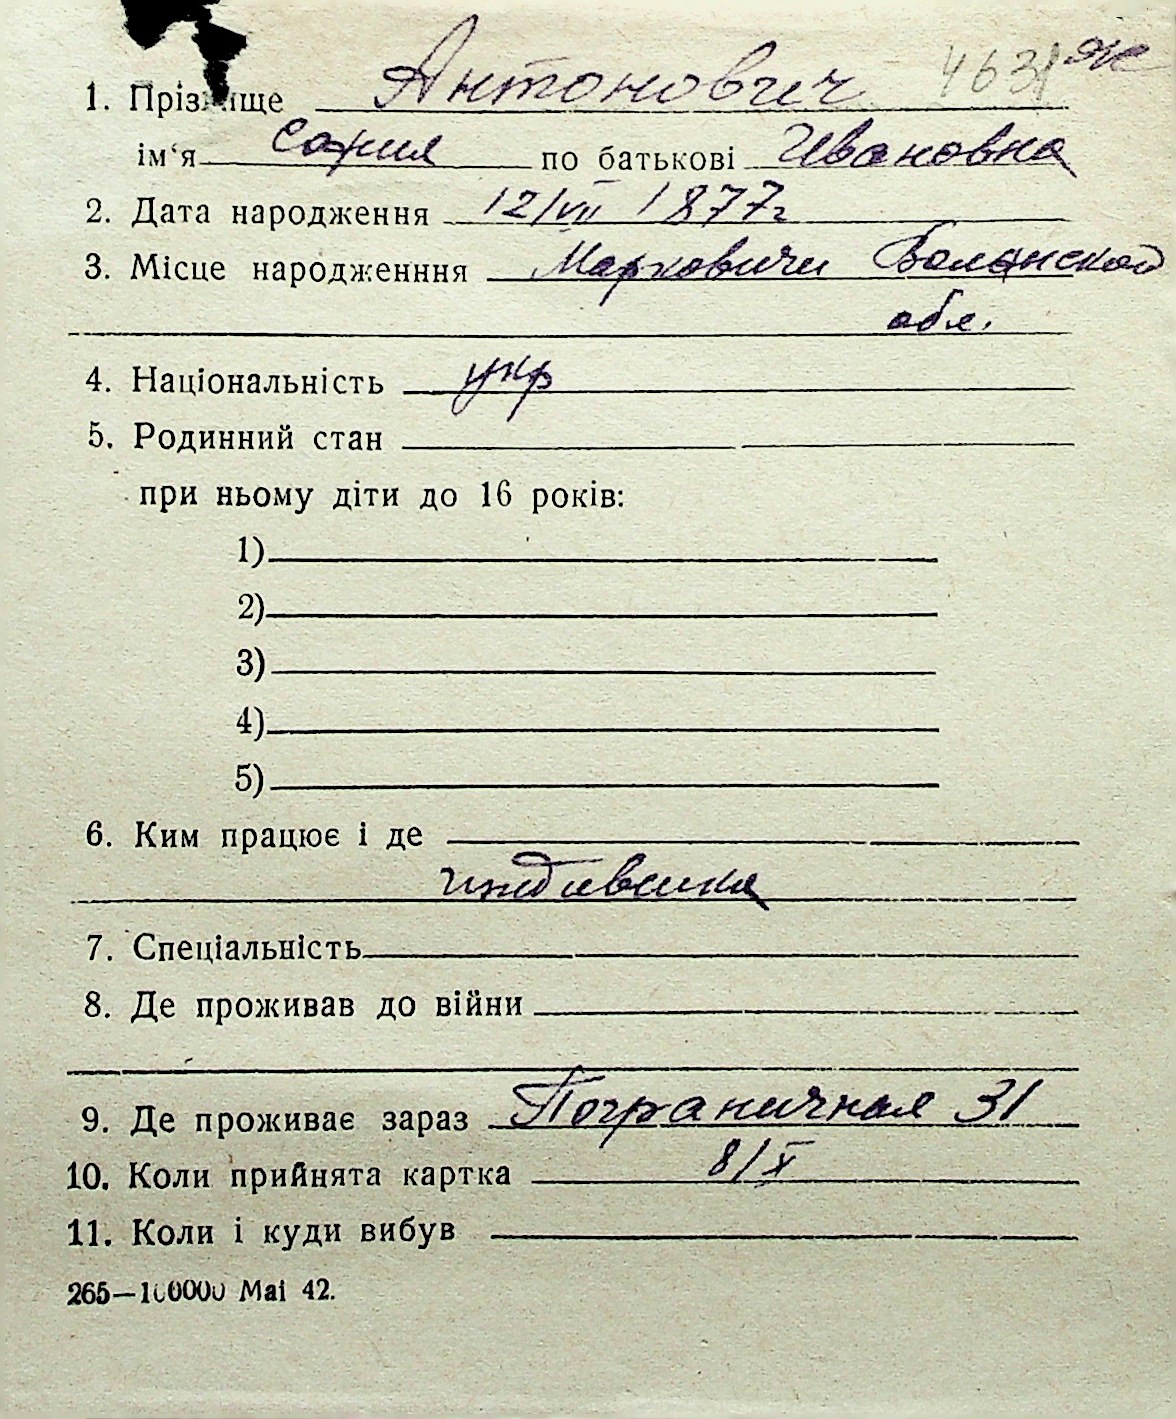 1. Прізвище Антонович 4631 Ж
ім'я София по батькові Ивановна
2. Дата народження 12/VII 1877г
3. Місце народженння Марковичи Волынской
обл.
4. Національність укр
5. Родинний стан
при ньому діти до 16 років:
1)
2)
3)
4)
5)
6. Ким працює і де
иждивенка
7. Спеціальність
8. Де проживав до війни
9. Де проживає зараз Пограничная 31
10. Коли прийнята картка 8/X
11. Коли і куди вибув
265—100000 Mai 42.